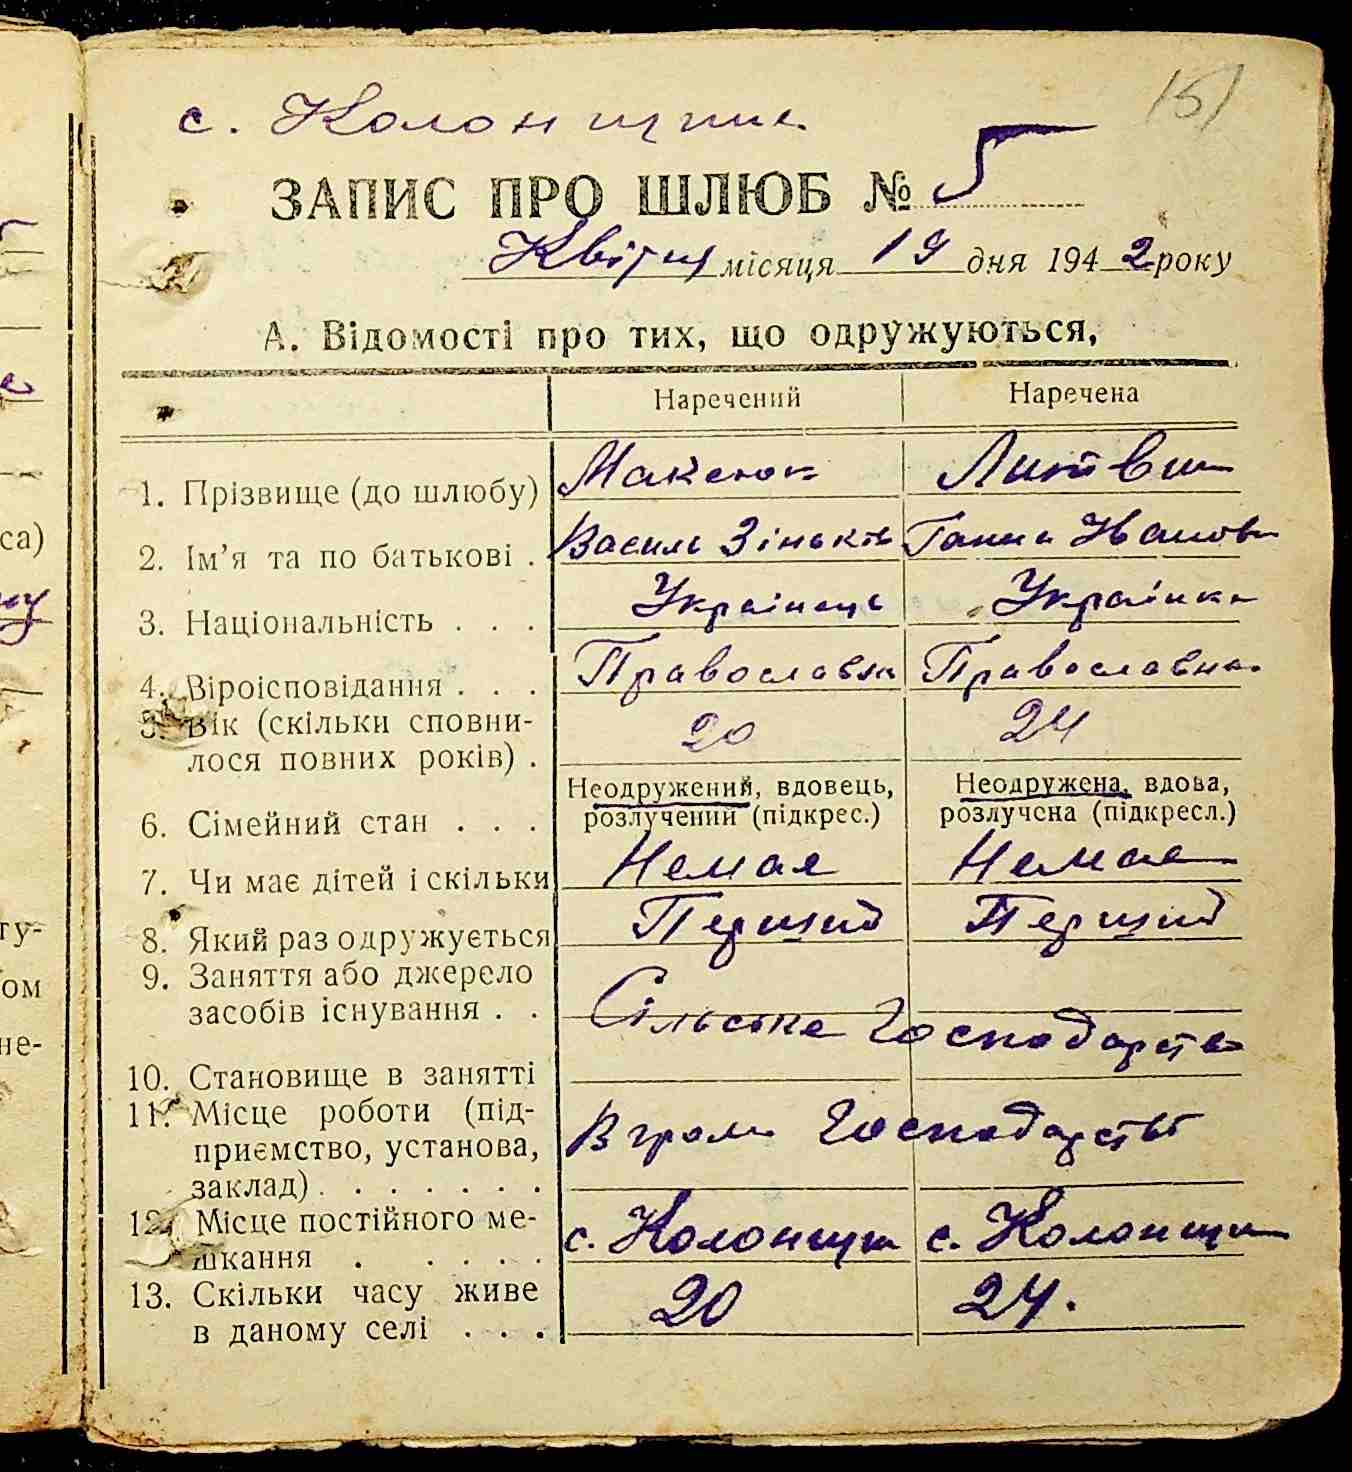 151
с. Колонщина
ЗАПИС ПРО ШЛЮБ № 5
Квітня місяця 19 дня 1942 року
А. Відомості про тих, що одружуються,
Наречений Наречена
1. Прізвище (до шлюбу) Максюк Литвин
2. Ім'я та по батькові . Василь Зіньків Ганна Іванов
3. Національність . . . Українець Українка
4. Віроісповідання . . . Православн Православна
5. Вік (скільки сповни-
лося повних років) . 20 24
6. Сімейний стан . . . Неодружений, вдовець, розлучений (підкрес.) Неодружена, вдова, розлучена (підкресл.)
7. Чи має дітей і скільки Немає Немає
8. Який раз одружується Перший Перший
9. Заняття або джерело
засобів існування . . Сільське Господарство
10. Становище в занятті
11. Місце роботи (під-
приємство, установа, В гром. Господарстві
заклад) . . . . . . .
12. Місце постійного ме-
шкання . . . . . с. Колонщин с. Колонщин
13. Скільки часу живе
в даному селі . . . 20 24.
са)
ту-
ом
не-